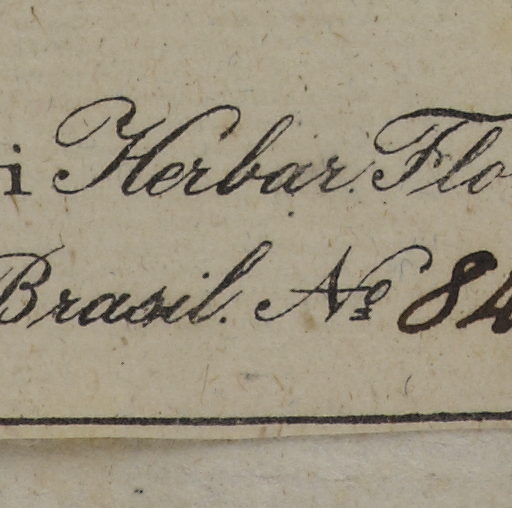 i Herbar. Flo
Brasil. No 84